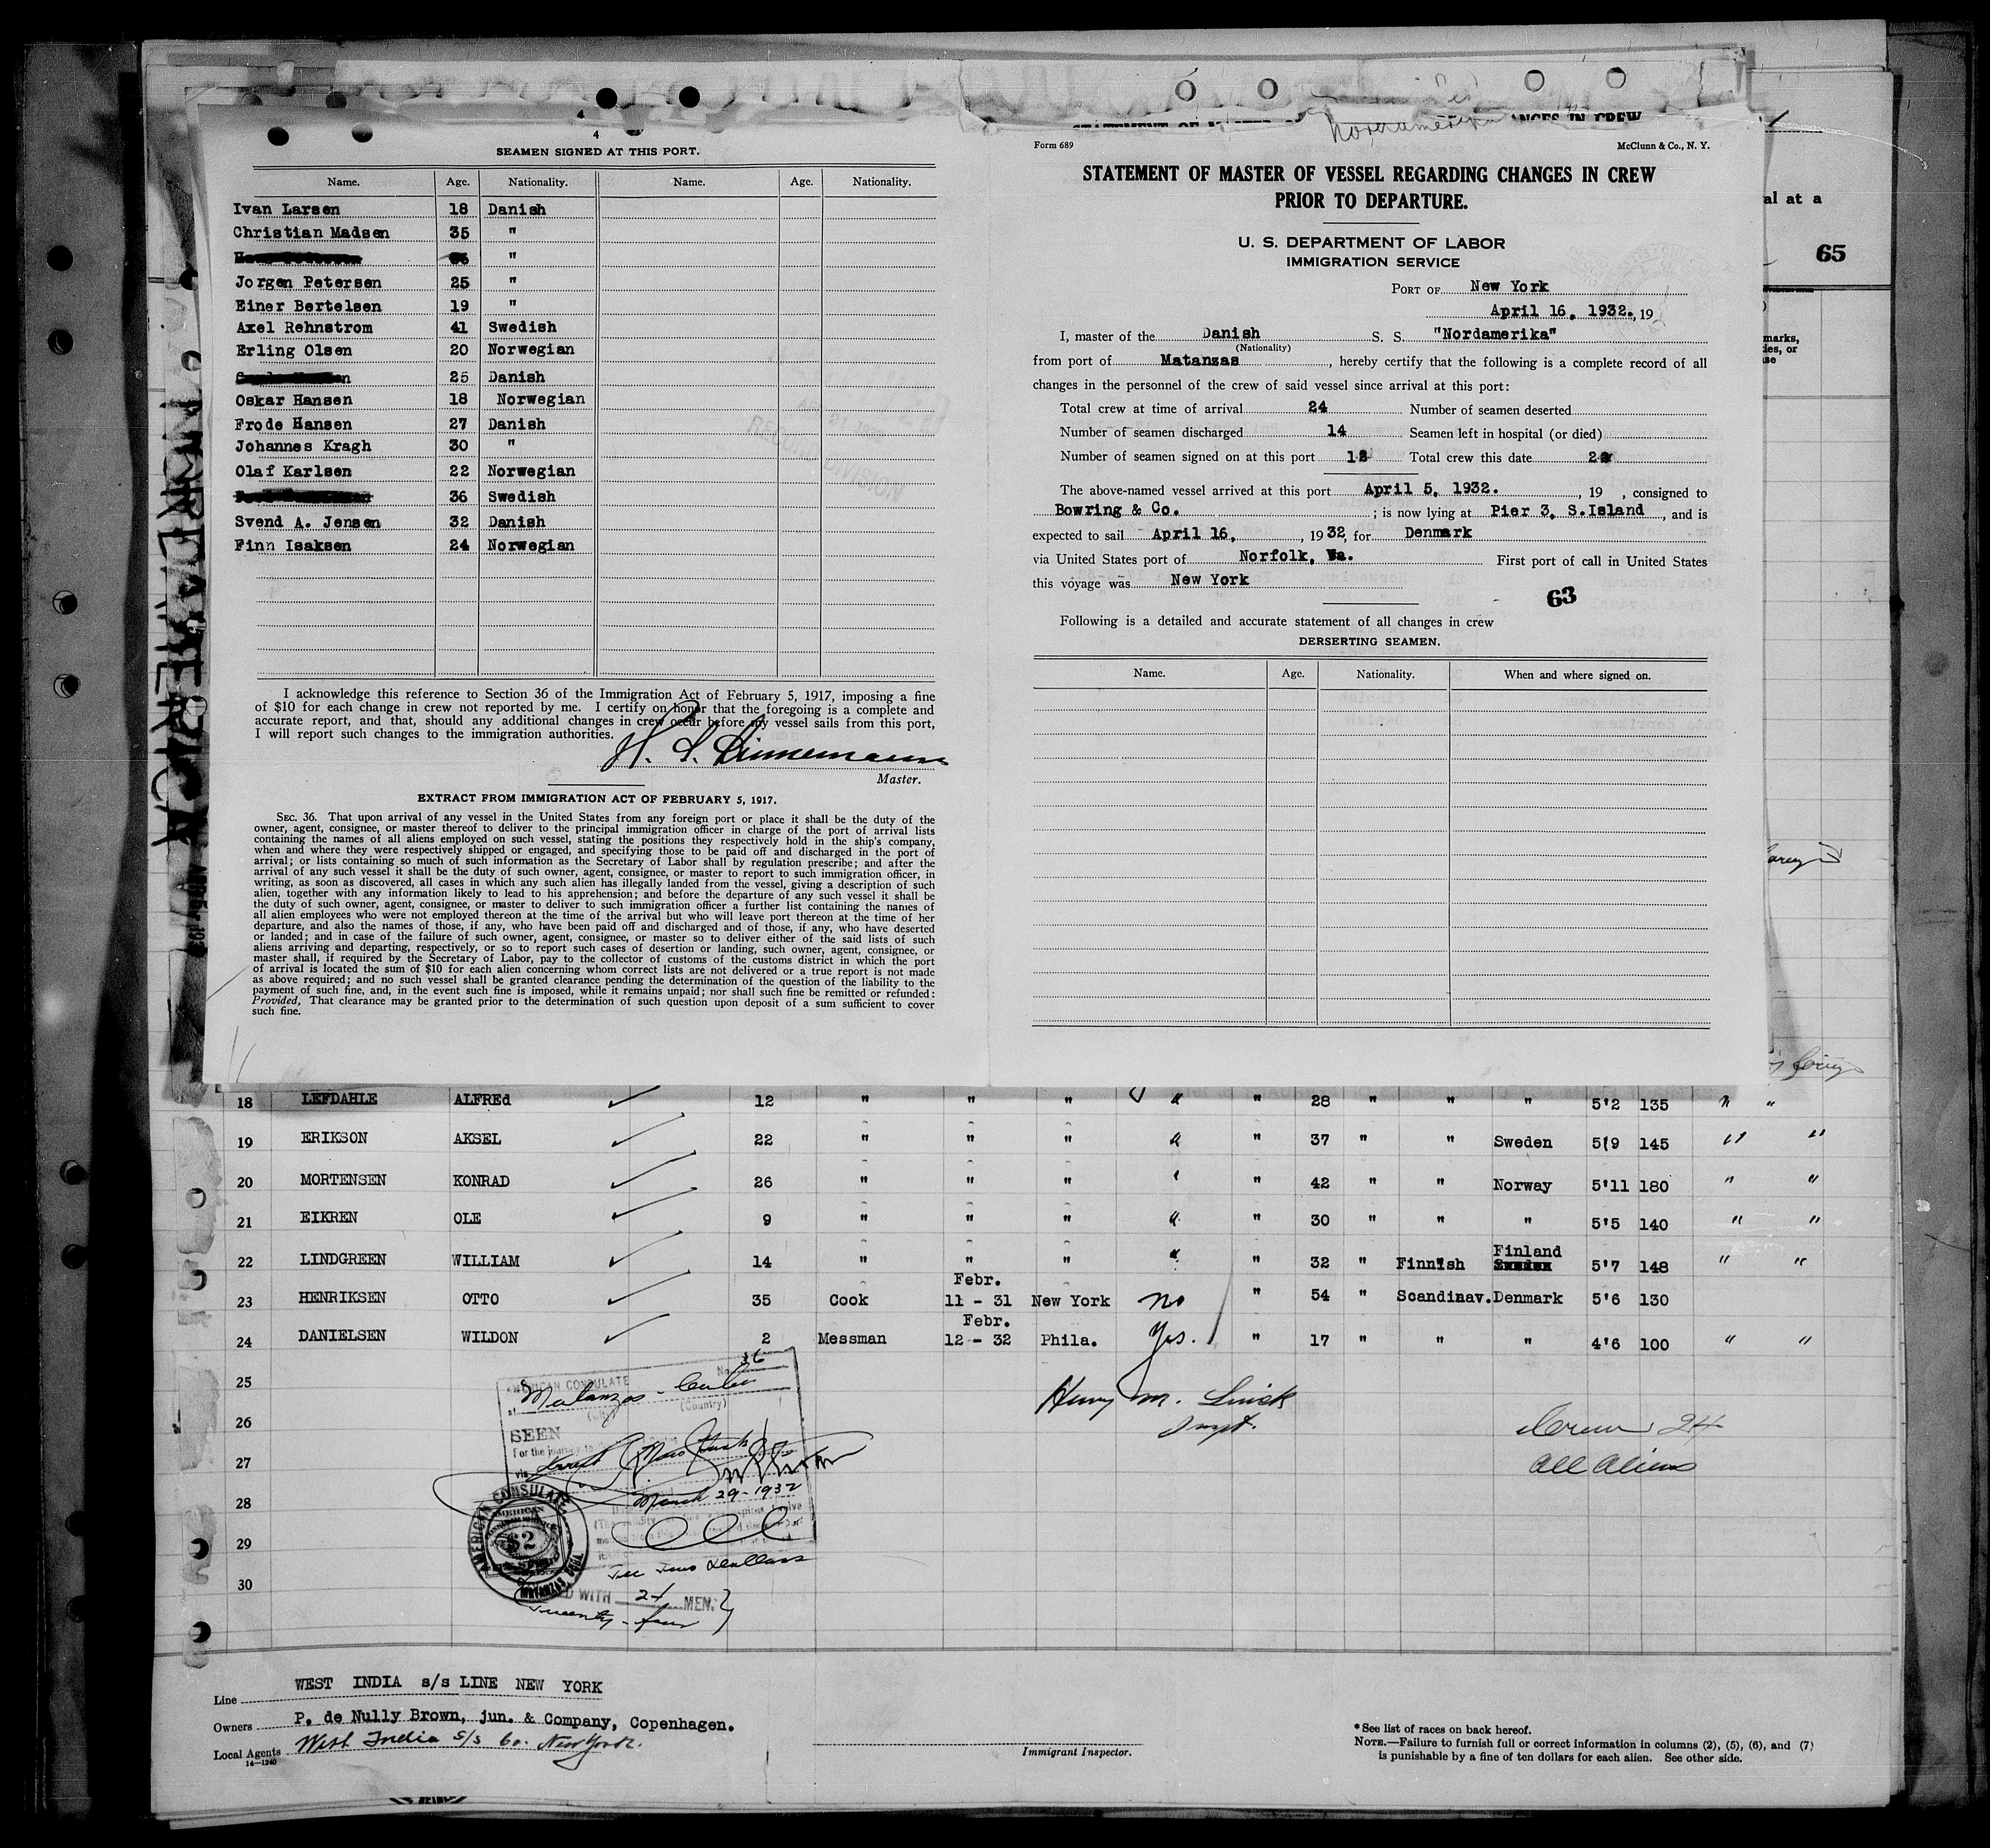 4
4
SEAMEN SIGNED AT THIS PORT.
Name. Age. Nationality. Name. Age. Nationality.
Ivan Larsen 18 Danish
Christian Madsen 35 "
"
Jorgen Petersen 25 "
Einer Bertelsen 19 "
Axel Rehnstrom 41 Swedish
Erling Olsen 20 Norwegian
25 Danish
Oskar Hansen 18 Norwegian
Frode Hansen 27 Danish
Johannes Kragh 30 "
Olaf Karlsen 22 Norwegian
36 Swedish
Svend A. Jensen 32 Danish
Finn Isaksen 24 Norwegian
RECORD DIVISION
I acknowledge this reference to Section 36 of the Immigration Act of February 5, 1917, imposing a fine
of $10 for each change in crew not reported by me. I certify on honor that the foregoing is a complete and
accurate report, and that, should any additional changes in crew occur before my vessel sails from this port,
I will report such changes to the immigration authorities.
Master.
EXTRACT FROM IMMIGRATION ACT OF FEBRUARY 5, 1917.
SEC. 36. That upon arrival of any vessel in the United States from any foreign port or place it shall be the duty of the
owner, agent, consignee, or master thereof to deliver to the principal immigration officer in charge of the port of arrival lists
containing the names of all aliens employed on such vessel, stating the positions they respectively hold in the ship's company,
when and where they were respectively shipped or engaged, and specifying those to be paid off and discharged in the port of
arrival; or lists containing so much of such information as the Secretary of Labor shall by regulation prescribe; and after the
arrival of any such vessel it shall be the duty of such owner, agent, consignee, or master to report to such immigration officer, in
writing, as soon as discovered, all cases in which any such alien has illegally landed from the vessel, giving a description of such
alien, together with any information likely to lead to his apprehension; and before the departure of any such vessel it shall be
the duty of such owner, agent, consignee, or master to deliver to such immigration officer a further list containing the names of
all alien employees who were not employed thereon at the time of the arrival but who will leave port thereon at the time of her
departure, and also the names of those, if any, who have been paid off and discharged and of those, if any, who have deserted
or landed; and in case of the failure of such owner, agent, consignee, or master so to deliver either of the said lists of such
aliens arriving and departing, respectively, or so to report such cases of desertion or landing, such owner, agent, consignee, or
master shall, if required by the Secretary of Labor, pay to the collector of customs of the customs district in which the port
of arrival is located the sum of $10 for each alien concerning whom correct lists are not delivered or a true report is not made
as above required; and no such vessel shall be granted clearance pending the determination of the question of the liability to the
payment of such fine, and, in the event such fine is imposed, while it remains unpaid; nor shall such fine be remitted or refunded:
Provided, That clearance may be granted prior to the determination of such question upon deposit of a sum sufficient to cover
such fine.
Nordamerika
Form 689 McClunn & Co., N. Y.
STATEMENT OF MASTER OF VESSEL REGARDING CHANGES IN CREW
PRIOR TO DEPARTURE.
U. S. DEPARTMENT OF LABOR
IMMIGRATION SERVICE
PORT OF New York
April 16, 1932. , 19
I, master of the Danish S. S. "Nordamerika"
(Nationality)
from port of Matanzas , hereby certify that the following is a complete record of all
changes in the personnel of the crew of said vessel since arrival at this port:
Total crew at time of arrival 24 Number of seamen deserted
Number of seamen discharged 14 Seamen left in hospital (or died)
Number of seamen signed on at this port 12 Total crew this date 22
The above-named vessel arrived at this port April 5, 1932. , 19 , consigned to
Bowring & Co. ; is now lying at Pier 3, S.Island , and is
expected to sail April 16, , 1932, for Denmark
via United States port of Norfolk, Va. First port of call in United States
this voyage was New York
63
Following is a detailed and accurate statement of all changes in crew
DERSERTING SEAMEN.
Name. Age. Nationality. When and where signed on.
al at a
65
marks,
ies, or
se
18 LEFDAHLE ALFREd 12 " " " " " 28 " " " 5'2 135 " "
19 ERIKSON AKSEL 22 " " " " " 37 " " Sweden 5'9 145 " "
20 MORTENSEN KONRAD 26 " " " " " 42 " " Norway 5'11 180 " "
21 EIKREN OLE 9 " " " " " 30 " " " 5'5 140 " "
22 LINDGREEN WILLIAM 14 " " " " " 32 " Finnish Finland Sweden 5'7 148 " "
23 HENRIKSEN OTTO 35 Cook Febr. 11 - 31 New York No " 54 " Scandinav. Denmark 5'6 130
24 DANIELSEN WILDON 2 Messman Febr. 12 - 32 Phila. Yes. " 17 " " " 4'6 100 " "
25
26
27
28
29
30
No. 36
AMERICAN CONSULATE
at Matanzas - Cuba
(City) (Country)
SEEN
For the journey to
via
March 29-1932
AMERICAN CONSULATE
$2
MATANZAS CUBA
Fee Two Dollars
WITH 24 MEN.
Twenty-four
Henry M.
Inspt.
Crew 24
All Aliens
Line WEST INDIA s/s LINE NEW YORK
Owners P. de Nully Brown, jun. & Company, Copenhagen.
Local Agents West India S/s Co. New York.
14—1240
Immigrant Inspector.
*See list of races on back hereof.
NOTE.—Failure to furnish full or correct information in columns (2), (5), (6), and (7)
is punishable by a fine of ten dollars for each alien. See other side.